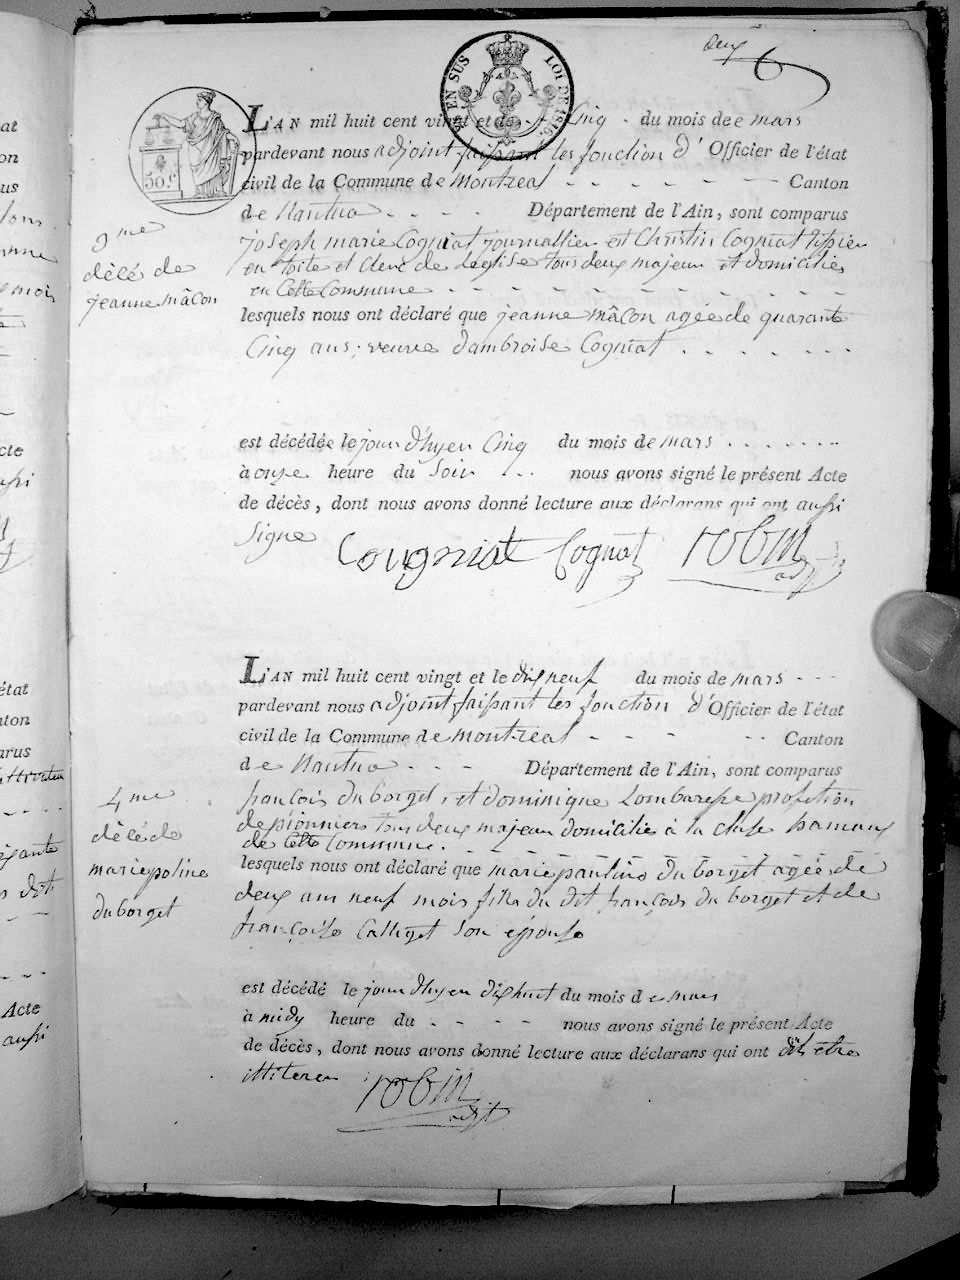 deux
6
EN SUS LOI DE 1816.
50.c
L'AN mil huit cent vingt et le Cinq . du mois de mars
pardevant nous adjoint faisant les fonction d' Officier de l'état
civil de la Commune de Montreal - - - - - - - Canton
de Nantua - - - - Département de l'Ain, sont comparus
joseph marie Cogniat journallier et Christin Cogniat
en toite et Clerc de leglise tous deux majeur et domiciliés
en Cette Commune - - - - - - - - - -
lesquels nous ont déclaré que jeanne mâcon agée de quarante
Cinq ans, veuve dambroise Cogniat . - - - - - -
est décédée le jour d'huyeu Cinq du mois de mars . - - - - - -
à onze heure du Soir - - - nous avons signé le présent Acte
de décès, dont nous avons donné lecture aux déclarans qui ont aussi
Signe
Cougniat Cognat robin adjt
3me
décé de
jeanne mâcon
L'AN mil huit cent vingt et le dix neuf du mois de mars - - -
pardevant nous adjoint faisant les fonction d' Officier de l'état
civil de la Commune de montreal - - - - - - Canton
de Nantua - - - - Département de l'Ain, sont comparus
françois du borget, et dominique Lombaresse profetion
de pionniers tous deux majeur domicilié à la cluse hameaux
de Cette Commune. - - - - - - - -
lesquels nous ont déclaré que marie pauline du borget agée de
deux ans neuf mois fille du dit françois du borget et de
françoise Calliget son épouse
est décédé le jour d'huyeu dixhuit du mois de mars
à midy heure du - - - - nous avons signé le présent Acte
de décès, dont nous avons donné lecture aux déclarans qui ont dit être
illiteres robin adjt
4me
décé de
marie poline
du borget
état
Canton
Acte
aussi